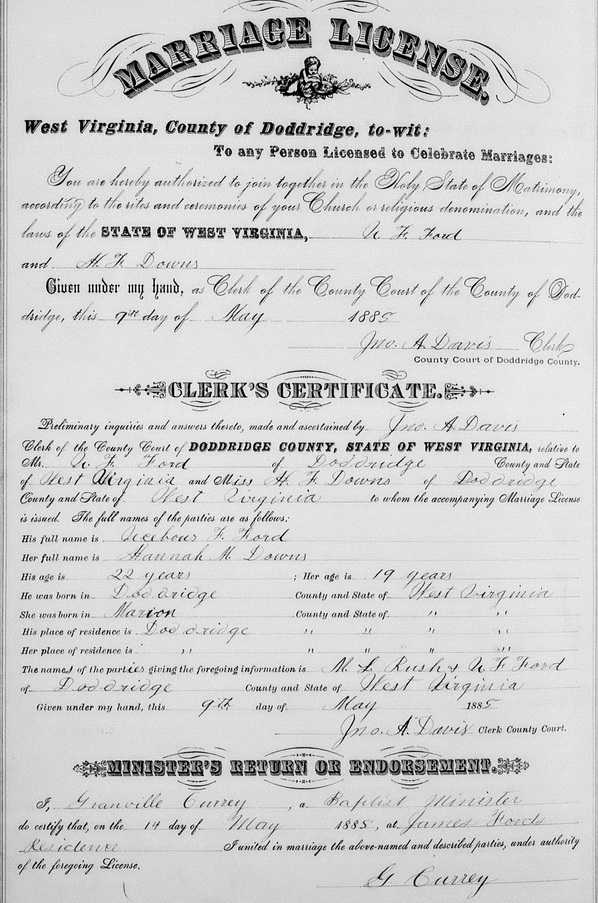 MARRIAGE LICENSE.
West Virginia, County of Doddridge, to-wit:
To any Person Licensed to Celebrate Marriages:
You are hereby authorized to join together in the Holy State of Matrimony,
according to the rites and ceremonies of your Church or religious denomination, and the
laws of the STATE OF WEST VIRGINIA, F. Ford
and H. F. Downs
Given under my hand, as Clerk of the County Court of the County of Dod-
dridge, this 9th day of May 1885
Jno. A. Davis Clerk
County Court of Doddridge County.
CLERK'S CERTIFICATE.
Preliminary inquiries and answers thereto, made and ascertained by Jno. A Davis
Clerk of the County Court of DODDRIDGE COUNTY, STATE OF WEST VIRGINIA, relative to
Mr. F. Ford of Doddridge County and State
of West Virginia and Miss H. F. Downs of Doddridge
County and State of West Virginia to whom the accompanying Marriage License
is issued. The full names of the parties are as follows:
His full name is F. Ford
Her full name is Hannah M. Downs
His age is 22 years ; Her age is 19 years
He was born in Doddridge County and State of West Virginia
She was born in Marion County and State of " "
His place of residence is Doddridge " " " "
Her place of residence is " " " " "
The names of the parties giving the foregoing information is M. L. Rush & F. Ford
of Doddridge County and State of West Virginia
Given under my hand, this 9th day of May 1885.
Jno. A. Davis Clerk County Court.
MINISTER'S RETURN OR ENDORSEMENT.
I, Granville Currey, a Baptist Minister
do certify that, on the 14 day of May 1885, at James Fords
Residence I united in marriage the above-named and described parties, under authority
of the foregoing License.
G Currey